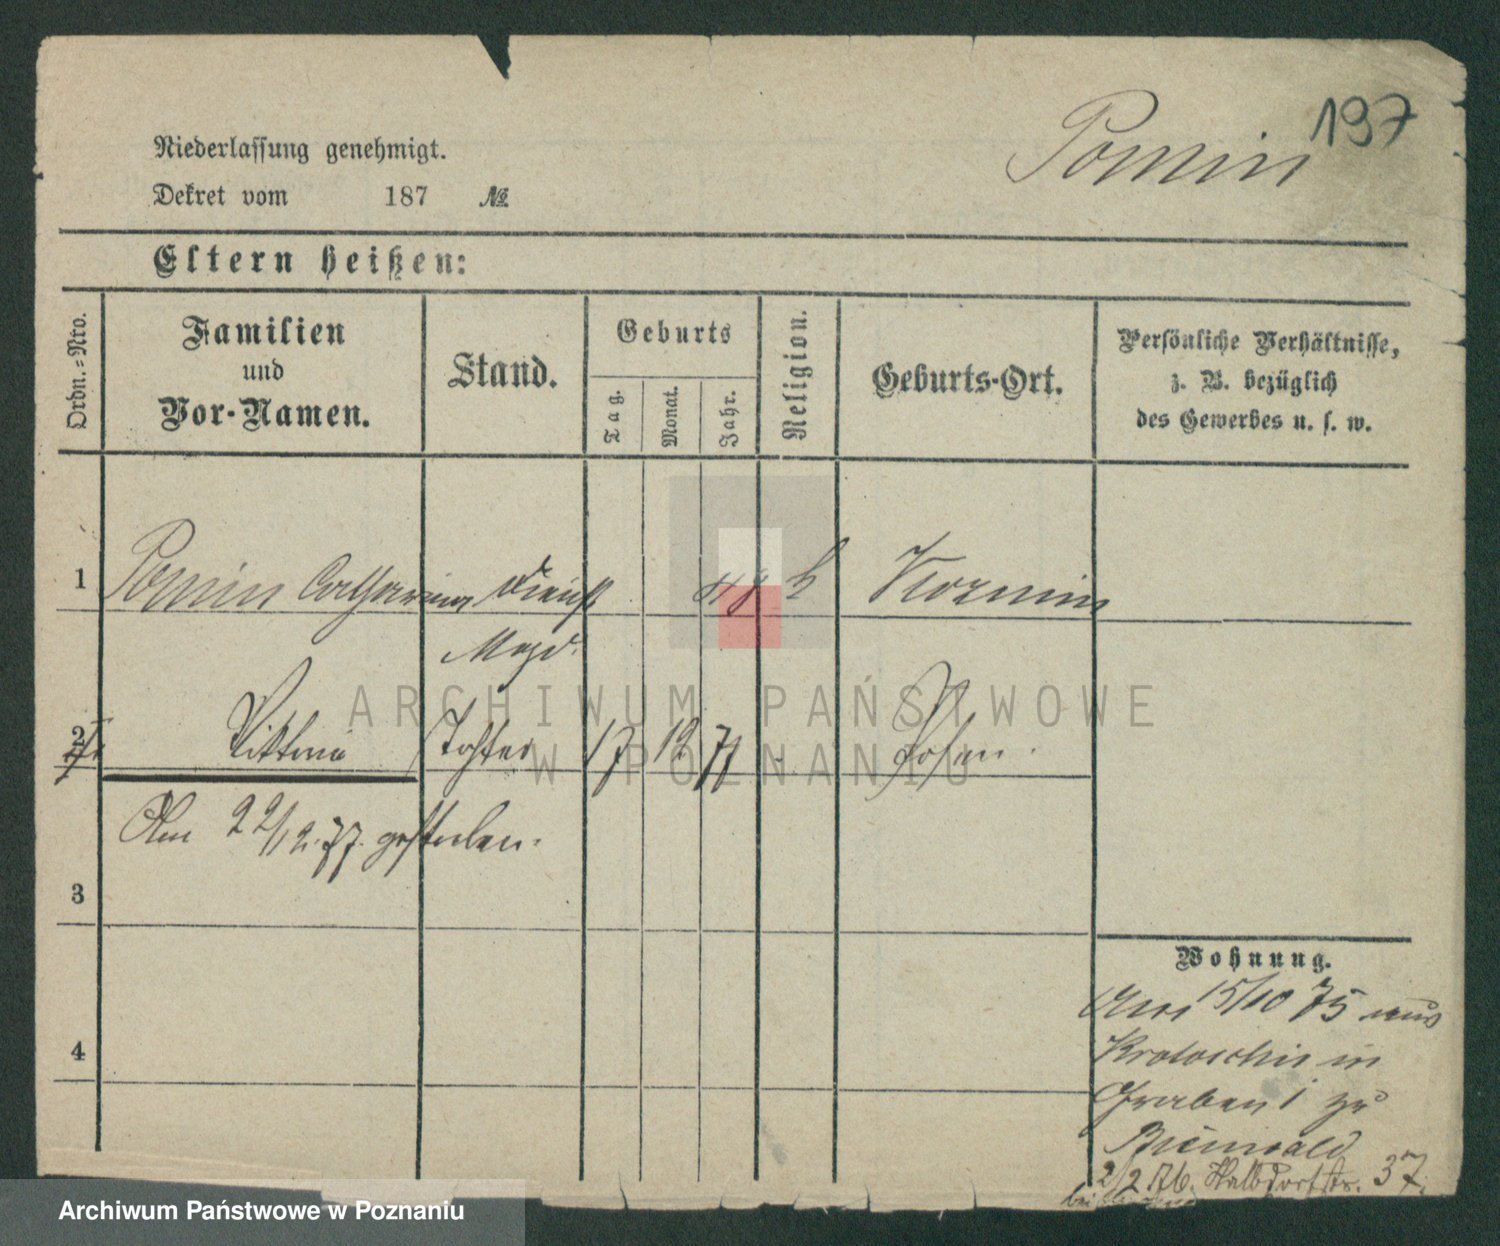 197
Pomin
Niederlassung genehmigt.
Dekret vom 187 №
Eltern heißen:
Ordn.-Nro.
Familien
und
Vor-Namen.
Stand.
Geburts
Tag.
Monat.
Jahr.
Religion.
Geburts-Ort.
Persönliche Verhältnisse,
z. B. bezüglich
des Gewerbes u. s. w.
1 Pomin Catharina Dienst 48 k Kozmin
Magd.
2 Viktoria Tochter 17 12 77 Posen
Am 22/12.77. gestorben.
3
4
Wohnung.
Am 15/10 75 aus
Krotoschin in
Graben 1 zu
Bienwald
2/2 76. Halbdorfstr. 37.
bei
ARCHIWUM PAŃSTWOWE
W POZNANIU
Archiwum Państwowe w Poznaniu